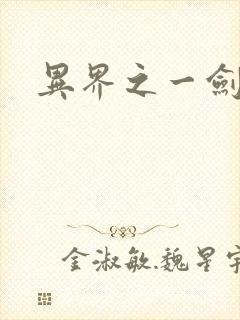 異界之一劍
金淑敏.魏星宇